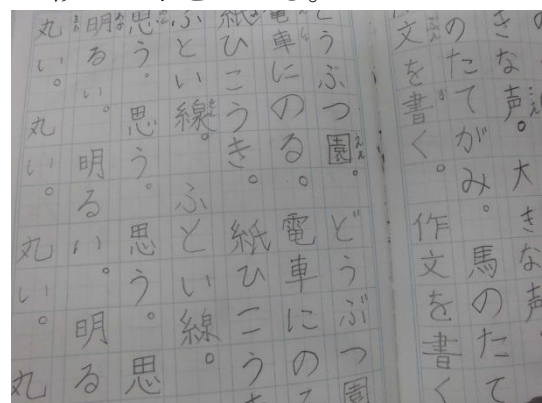 きな声。大きな声。
のたてがみ。馬のたて
文を書く。作文を書く
どうぶつ園。どうぶつ園
電車にのる。電車にの
紙ひこうき。紙ひこう
ふとい線。ふとい線。
思う。思う。思う。思
明るい。明るい。明る
丸い。丸い。丸い。丸